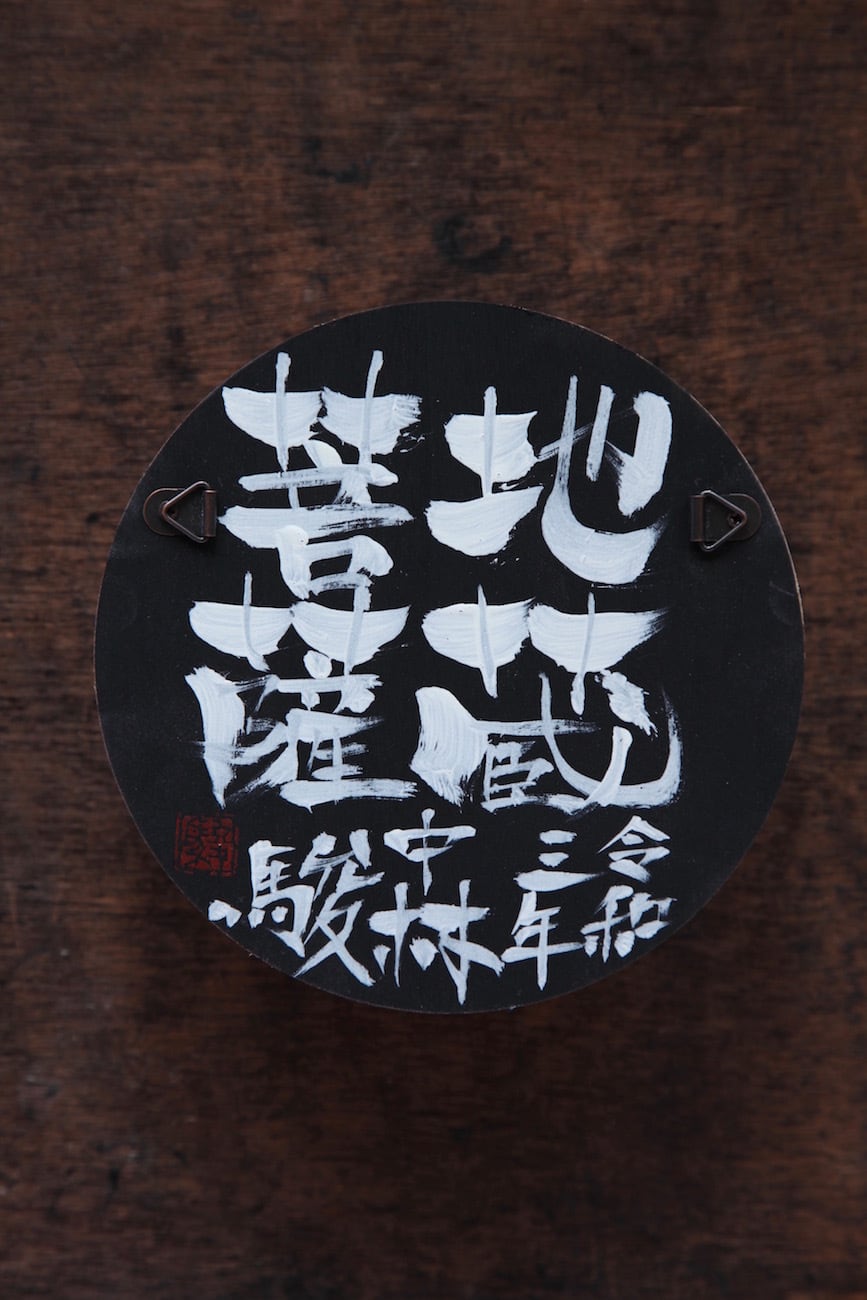 地蔵
菩薩
令和
三年
中林
駿